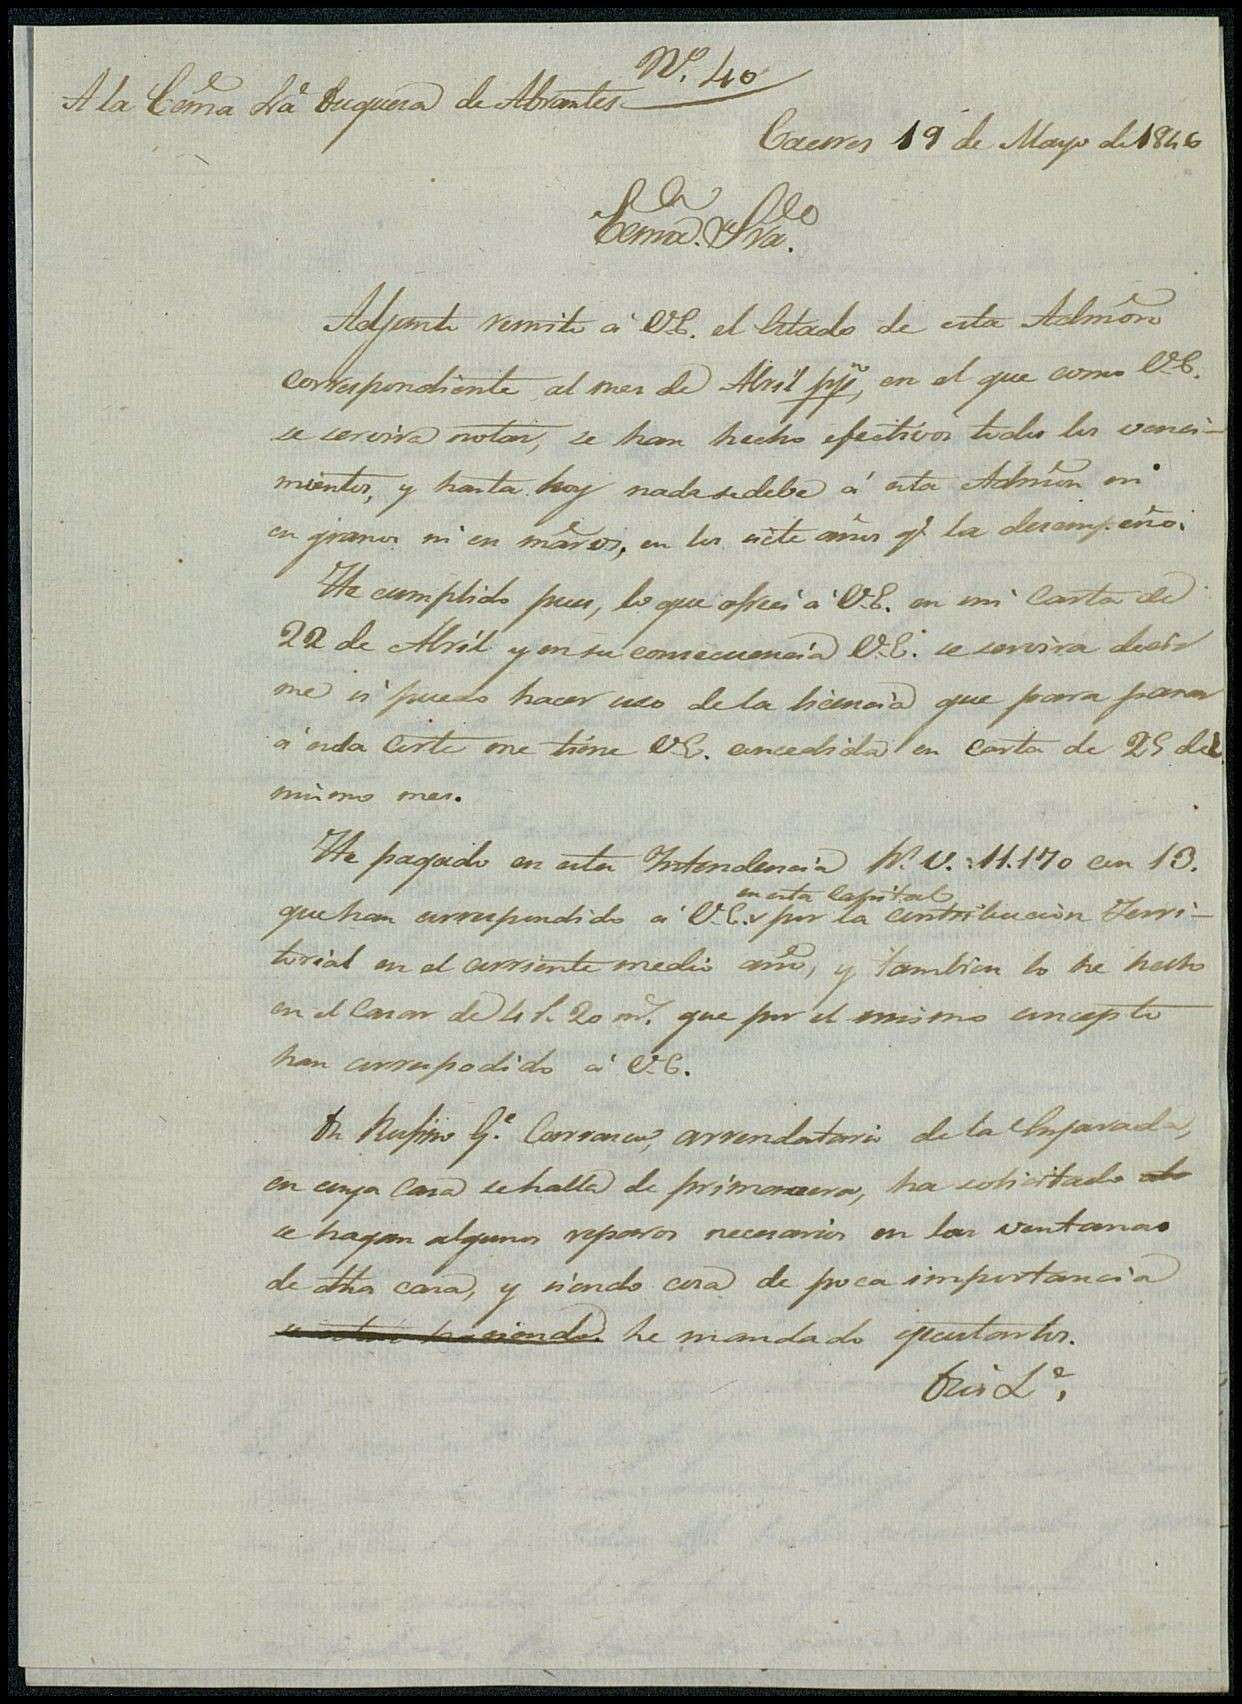 Nº. 40
A la Exma Sra Duquesa de Abrantes
Caceres 19 de Mayo de 1846
Exma. Sra.
Adjunto remito á V.E. el Estado de esta Admon
correspondiente al mes de Abril ppº, en el que como V.E.
se servirá notar, se han hecho efectivos todos los venci-
mientos, y hasta hoy nada se debe á esta Admon ni
en granos ni en mravs, en los siete años q.e la desempeño.
He cumplido pues, lo que ofrecí á V.E. en mi carta de
22 de Abril y en su consecuencia V.E. se servira decir
me si puedo hacer uso de la licencia que para pasar
á esda Corte me tiene V.E. concedida en carta de 25 del
mismo mes.
He pagado en esta Intendencia R.s v.: 11.170 con 13.
en esta Capital
que han correspondido á V.E. por la contribucion Terri-
torial en el corriente medio año, y tambien lo he hecho
en el Casar de 4 r.s 20 m.s que por el mismo concepto
han correspodido á V.E.
Dn Rufino G.a Carrasco, arrendatario de la Enjarada,
en cuya casa se halla de primavera, ha solicitado
se hagan algunos reparos necesarios en las ventanas
de dha casa, y siendo cosa de poca importancia
se estan haciendo he mandado ejecutarlos.
Dios L.e,